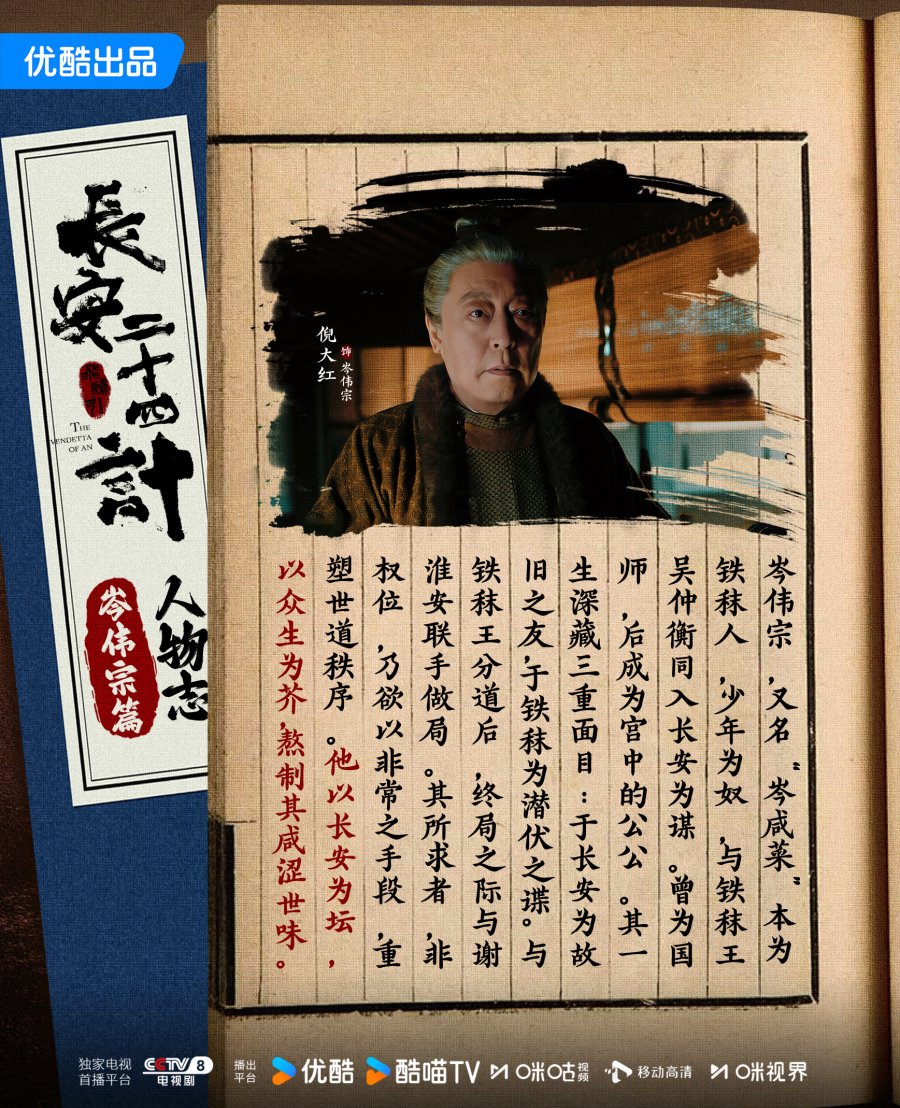 优酷出品
長安
二十四
計
THE
VENDETTA
OF AN
人物志
岑伟宗篇
倪大红
饰 岑伟宗
岑伟宗，又名“岑咸菜”本为
铁秣人，少年为奴，与铁秣王
吴仲衡同入长安为谋。曾为国
师，后成为宫中的公公。其一
生深藏三重面目：于长安为故
旧之友，于铁秣为潜伏之谍。与
铁秣王分道后，终局之际与谢
淮安联手做局。其所求者，非
权位，乃欲以非常之手段，重
塑世道秩序。他以长安为坛，
以众生为芥，熬制其咸涩世味。
独家电视
首播平台
CCTV 8
电视剧
播出
平台
优酷
酷喵TV
咪咕视频
移动高清
咪视界